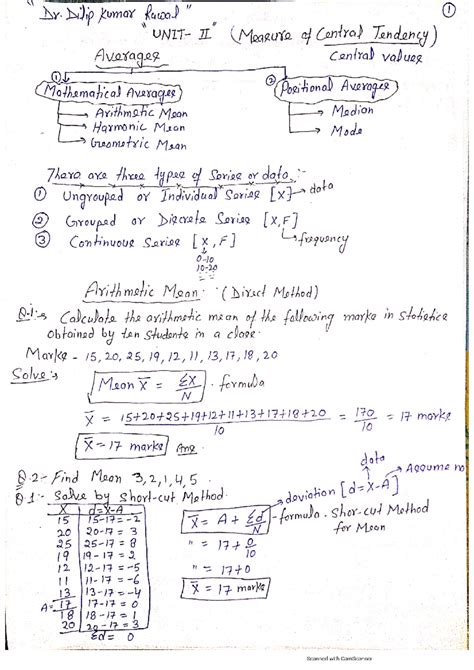 ①
Dr. Dilip Kumar Rawal"
"UNIT- II" (Measure of Central Tendency)
Averages
Central values
① Mathematical Averages
② Positional Averages
→ Arithmetic Mean
→ Harmonic Mean
→ Geometric Mean
→ Median
→ Mode
There are three types of Series or data :-
① Ungrouped or Individual Series [X] → data
② Grouped or Discrete Series [X,F]
↳ frequency
③ Continuous Series [X, F]
0-10
10-20
Arithmetic Mean : (Direct Method)
Q.1:- Calculate the arithmetic mean of the following marks in Statistics
obtained by ten students in a class.
Marks - 15, 20, 25, 19, 12, 11, 13, 17, 18, 20
Solve:-
Mean X̄ = ΣX/N . formula
X̄ = 15+20+25+19+12+11+13+17+18+20/10 = 170/10 = 17 marks
X̄ = 17 marks Ans.
Q.2- Find Mean 3, 2, 1, 4, 5.
data
Q.1- Solve by Short-cut Method.
→ deviation [d = X-A] → Assume no
X | d=X-A
15 | 15-17 = -2
20 | 20-17 = 3
25 | 25-17 = 8
19 | 19-17 = 2
12 | 12-17 = -5
11 | 11-17 = -6
13 | 13-17 = -4
A= 17 | 17-17 = 0
18 | 18-17 = 1
20 | 20-17 = 3
Σd = 0
X̄ = A + Σd/N - formula - Shor-cut Method
for Mean
" = 17 + 0/10
" = 17+0
X̄ = 17 marks
Scanned with CamScanner